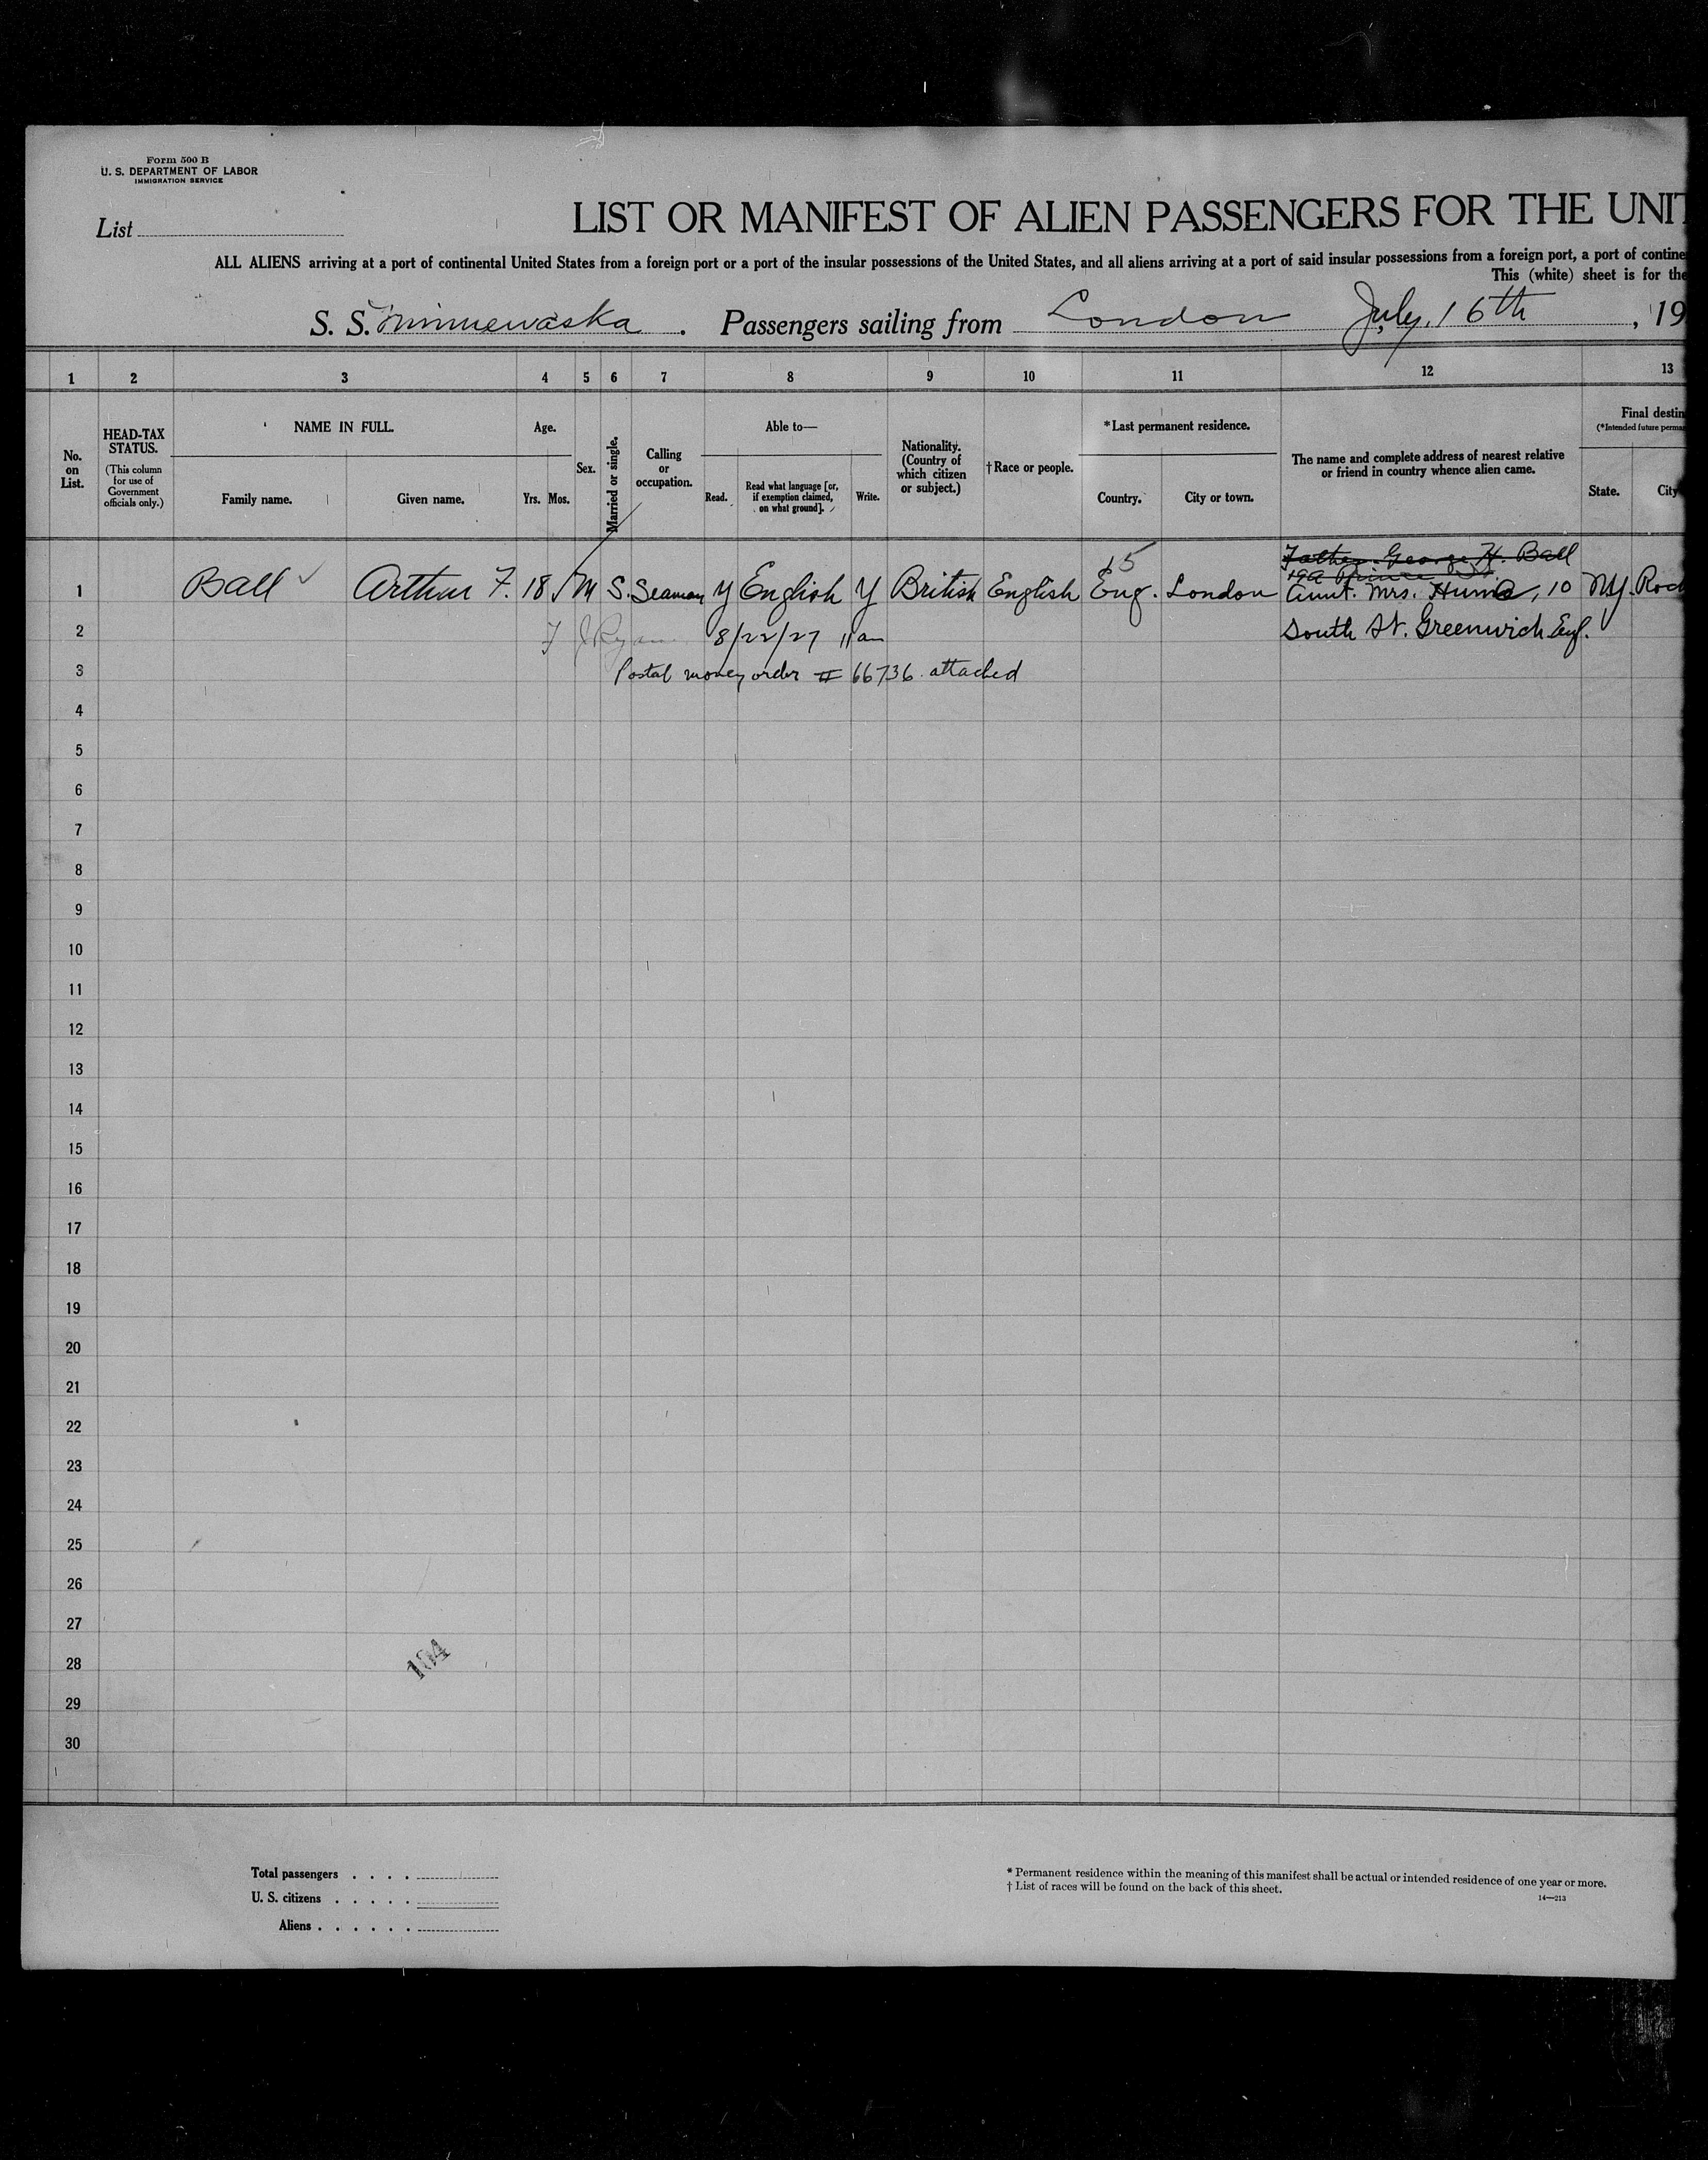 Form 500 B
U. S. DEPARTMENT OF LABOR
IMMIGRATION SERVICE
List
LIST OR MANIFEST OF ALIEN PASSENGERS FOR THE UNIT
ALL ALIENS arriving at a port of continental United States from a foreign port or a port of the insular possessions of the United States, and all aliens arriving at a port of said insular possessions from a foreign port, a port of contine
This (white) sheet is for the
S. S. Minnewaska . Passengers sailing from London July 16th , 19
1 2 3 4 5 6 7 8 9 10 11 12 13
No. on List.
HEAD-TAX STATUS.
(This column for use of Government officials only.)
NAME IN FULL.
Family name. Given name.
Age.
Yrs. Mos.
Sex.
Married or single.
Calling or occupation.
Able to—
Read. Read what language [or, if exemption claimed, on what ground]. Write.
Nationality. (Country of which citizen or subject.)
†Race or people.
*Last permanent residence.
Country. City or town.
The name and complete address of nearest relative or friend in country whence alien came.
Final destin
(*Intended future perma
State. City
15 Father George H. Ball
19A Prince St.
1 Ball ✓ Arthur F. 18 ✓ M S. Seaman Y English Y British English Eng. London Aunt. Mrs. Hume, 10 NY. Roch
2 F J Ryan 8/22/27 11 am South St. Greenwich Eng.
3 Postal money order # 66736 attached
4
5
6
7
8
9
10
11
12
13
14
15
16
17
18
19
20
21
22
23
24
25
26
27
28
104
29
30
Total passengers . . . .
U. S. citizens . . . . .
Aliens . . . . . .
* Permanent residence within the meaning of this manifest shall be actual or intended residence of one year or more.
† List of races will be found on the back of this sheet.
14—213